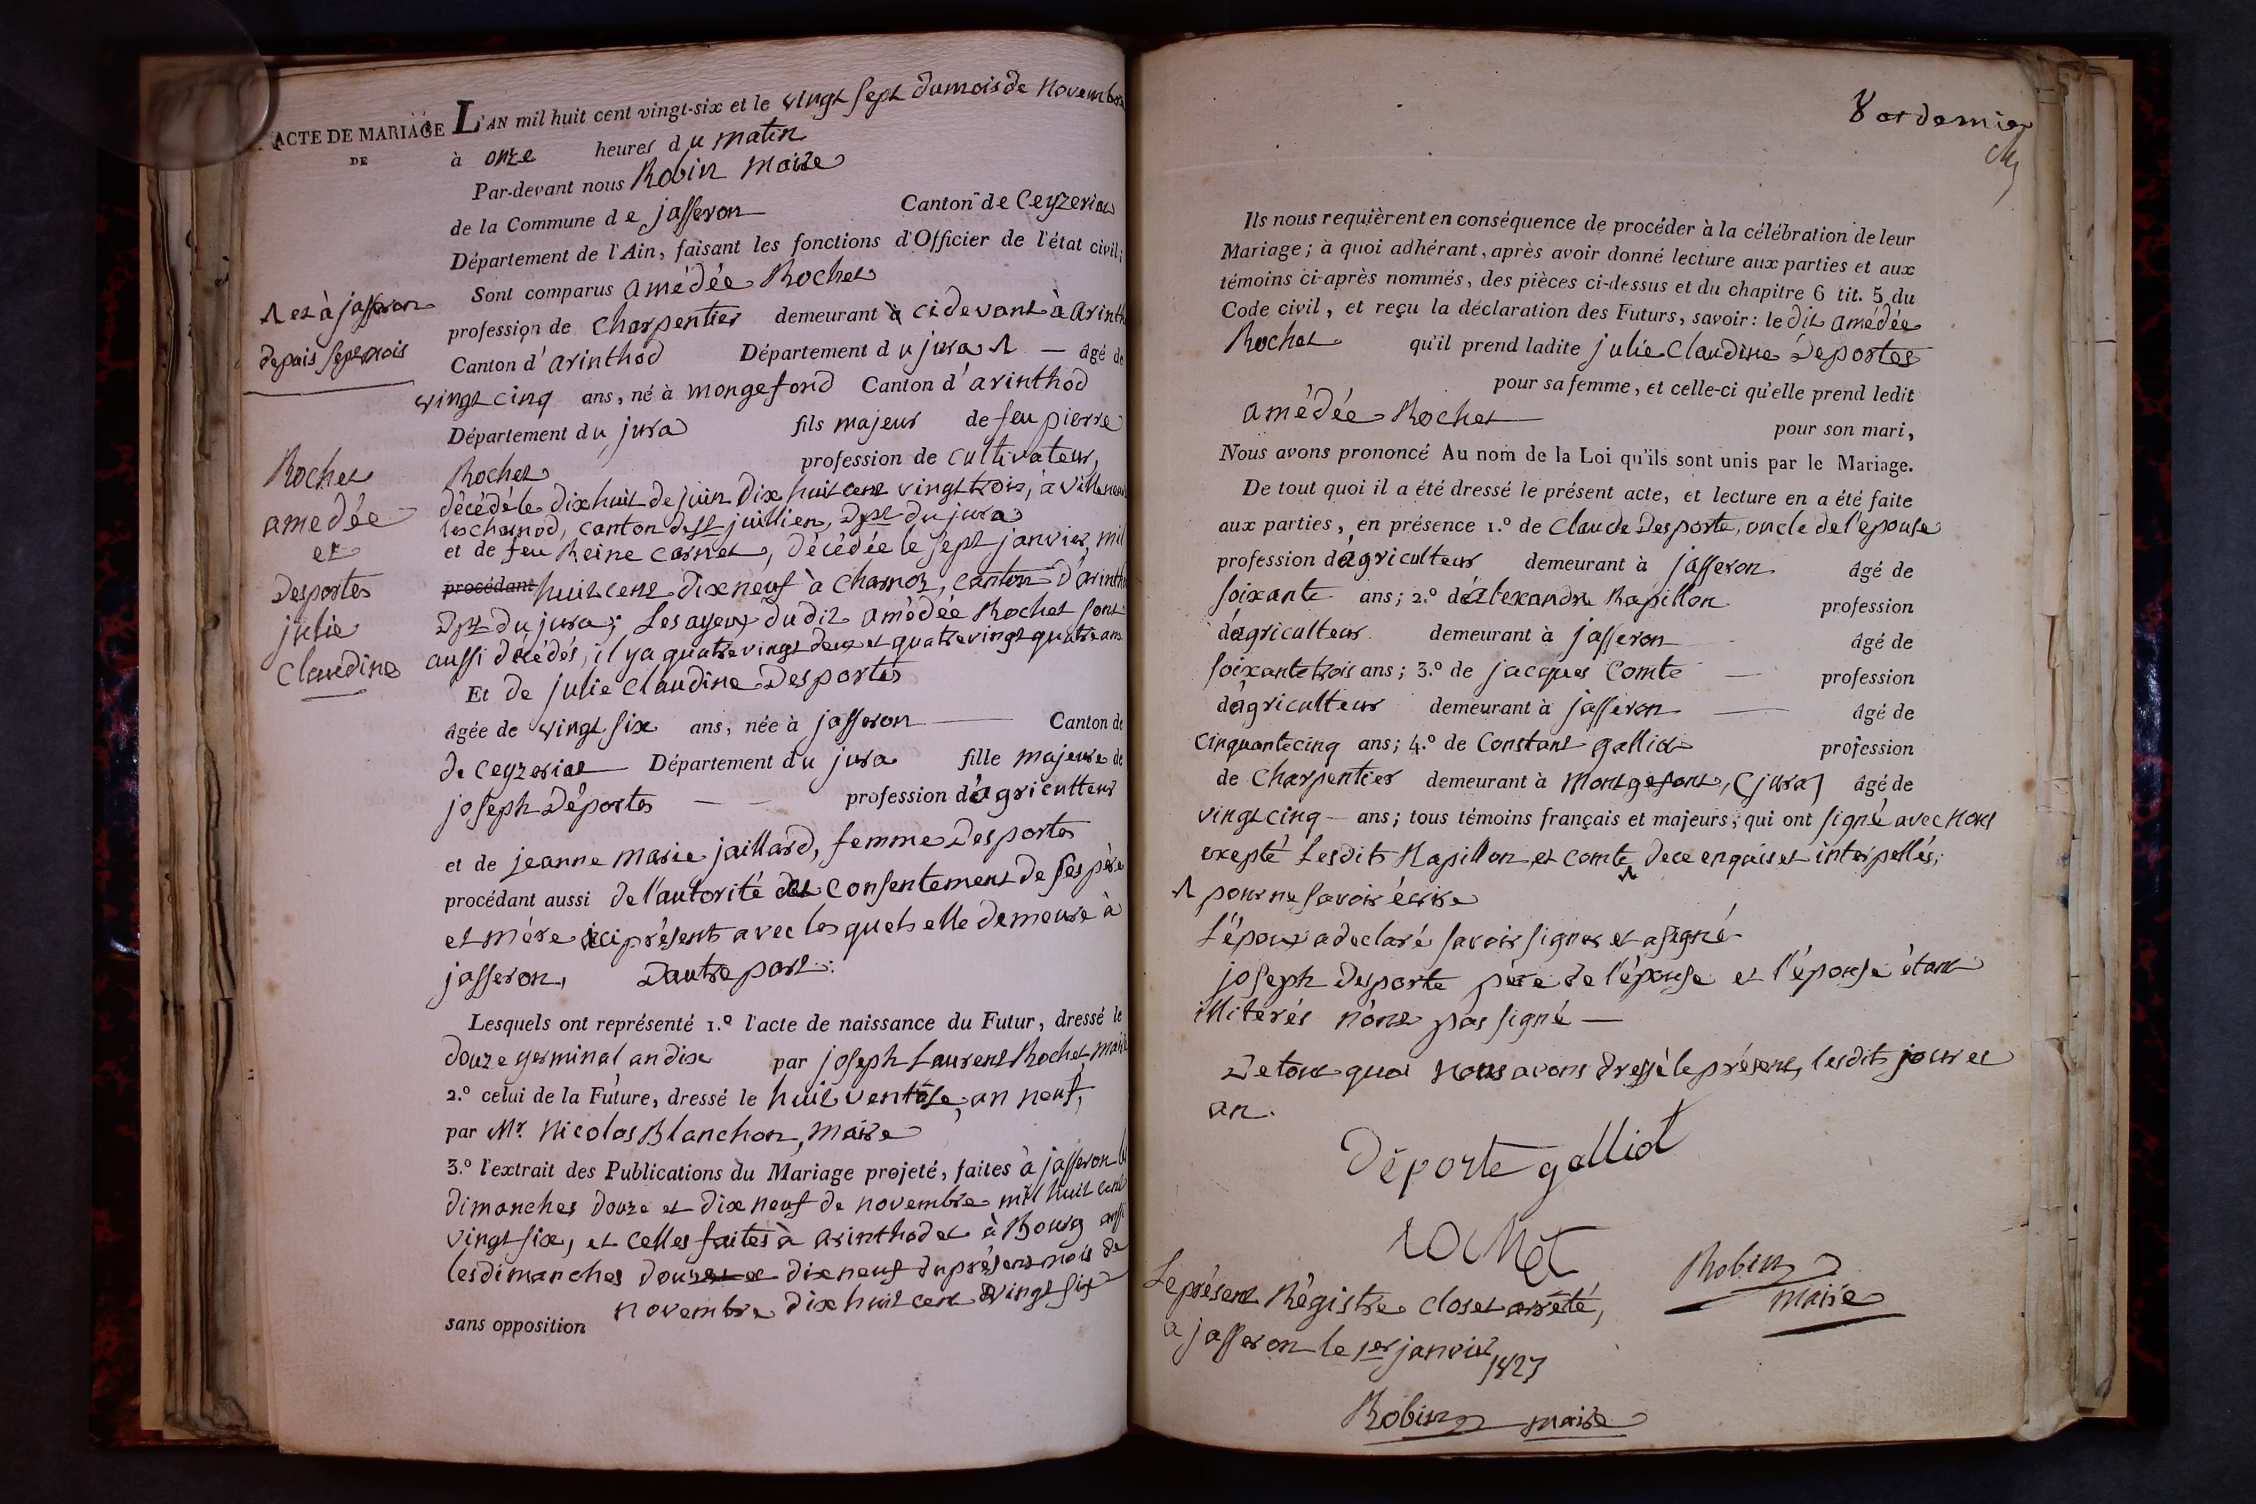 ACTE DE MARIAGE
DE
L'AN mil huit cent vingt-six et le vingt sept du mois de novembre
à onze heures du matin
Par-devant nous Robin maire
de la Commune de jasseron Canton de Ceyzeriat
Département de l'Ain, faisant les fonctions d'Officier de l'état civil;
Sont comparus amédée Rochet
profession de charpentier demeurant à ci devant à arinthod
Canton d'arinthod Département du jura — âgé de
vingt cinq ans, né à mongefond Canton d'arinthod
Département du jura fils majeur de feu pierre
Rochet profession de cultivateur,
décédé le dix huit de juin dix huit cent vingt trois, à villeneuve
les charnod, canton de st juillien, Dpt du jura
et de feu Reine cornet, décédée le sept janvier, mil
procédant huit cent dix neuf à charnoz, canton d'arinthod
Dpt du jura; Les ayeux du dit amédée Rochet sont
aussi décédés, il y a quatre vingt deux et quatre vingt quatre ans
Et de julie claudine Desportes
âgée de vingt six ans, née à jasseron Canton de
de ceyzeriat Département du jura fille majeure de
joseph Déportes profession d'agriculteur
et de jeanne marie jaillard, femme Desportes
procédant aussi de l'autorité et consentement de ses père
et mère ici présents avec lesquels elle demeure à
jasseron, D'autre part.
Lesquels ont représenté 1.º l'acte de naissance du Futur, dressé le
douze germinal an dix par joseph Laurent Rochet, maire
2.º celui de la Future, dressé le huit ventôse, an neuf,
par Mr. Nicolas Blanchon, maire
3.º l'extrait des Publications du Mariage projeté, faites à jasseron les
dimanches douze et dix neuf de novembre mil huit cent
vingt six, et celles faites à arinthod et à Bourg aussi
les dimanches douze et dix neuf du présent mois de
novembre dix huit cent vingt six
sans opposition
et à jasseron
depuis sept mois
Rochet
amedée
et
Desportes
julie
Claudine
8 et dernier
Ils nous requièrent en conséquence de procéder à la célébration de leur
Mariage; à quoi adhérant, après avoir donné lecture aux parties et aux
témoins ci-après nommés, des pièces ci-dessus et du chapitre 6 tit. 5 du
Code civil, et reçu la déclaration des Futurs, savoir: le dit amédée
Rochet qu'il prend ladite julie Claudine Deportes
pour sa femme, et celle-ci qu'elle prend ledit
amédée Rochet
pour son mari,
Nous avons prononcé Au nom de la Loi qu'ils sont unis par le Mariage.
De tout quoi il a été dressé le présent acte, et lecture en a été faite
aux parties, en présence 1.º de claude Desporte, oncle de l'épouse
profession d'agriculteur demeurant à jasseron âgé de
soixante ans; 2.º d'alexandre Rapillon profession
d'agriculteur demeurant à jasseron âgé de
soixante trois ans; 3.º de jacques Comte profession
d'agriculteur demeurant à jasseron âgé de
cinquante cinq ans; 4.º de Constant galliot profession
de charpentier demeurant à montgefont, (jura) âgé de
vingt cinq ans; tous témoins français et majeurs, qui ont signé avec nous
excepté Lesdits Rapillon et comte, de ce enquis et interpellés;
pour ne savoir écrire
L'époux a declaré savoir signer et a signé
joseph Desporte père de l'épouse et l'épouse étant
illiterés n'ont pas signé —
De tout quoi nous avons dressé le présent, lesdits jour et
an.
Déporte galliot
Rochet
Robin
maire
Le présent Régistre clos et arrêté,
à jasseron le 1er janvier 1827
Robin maire